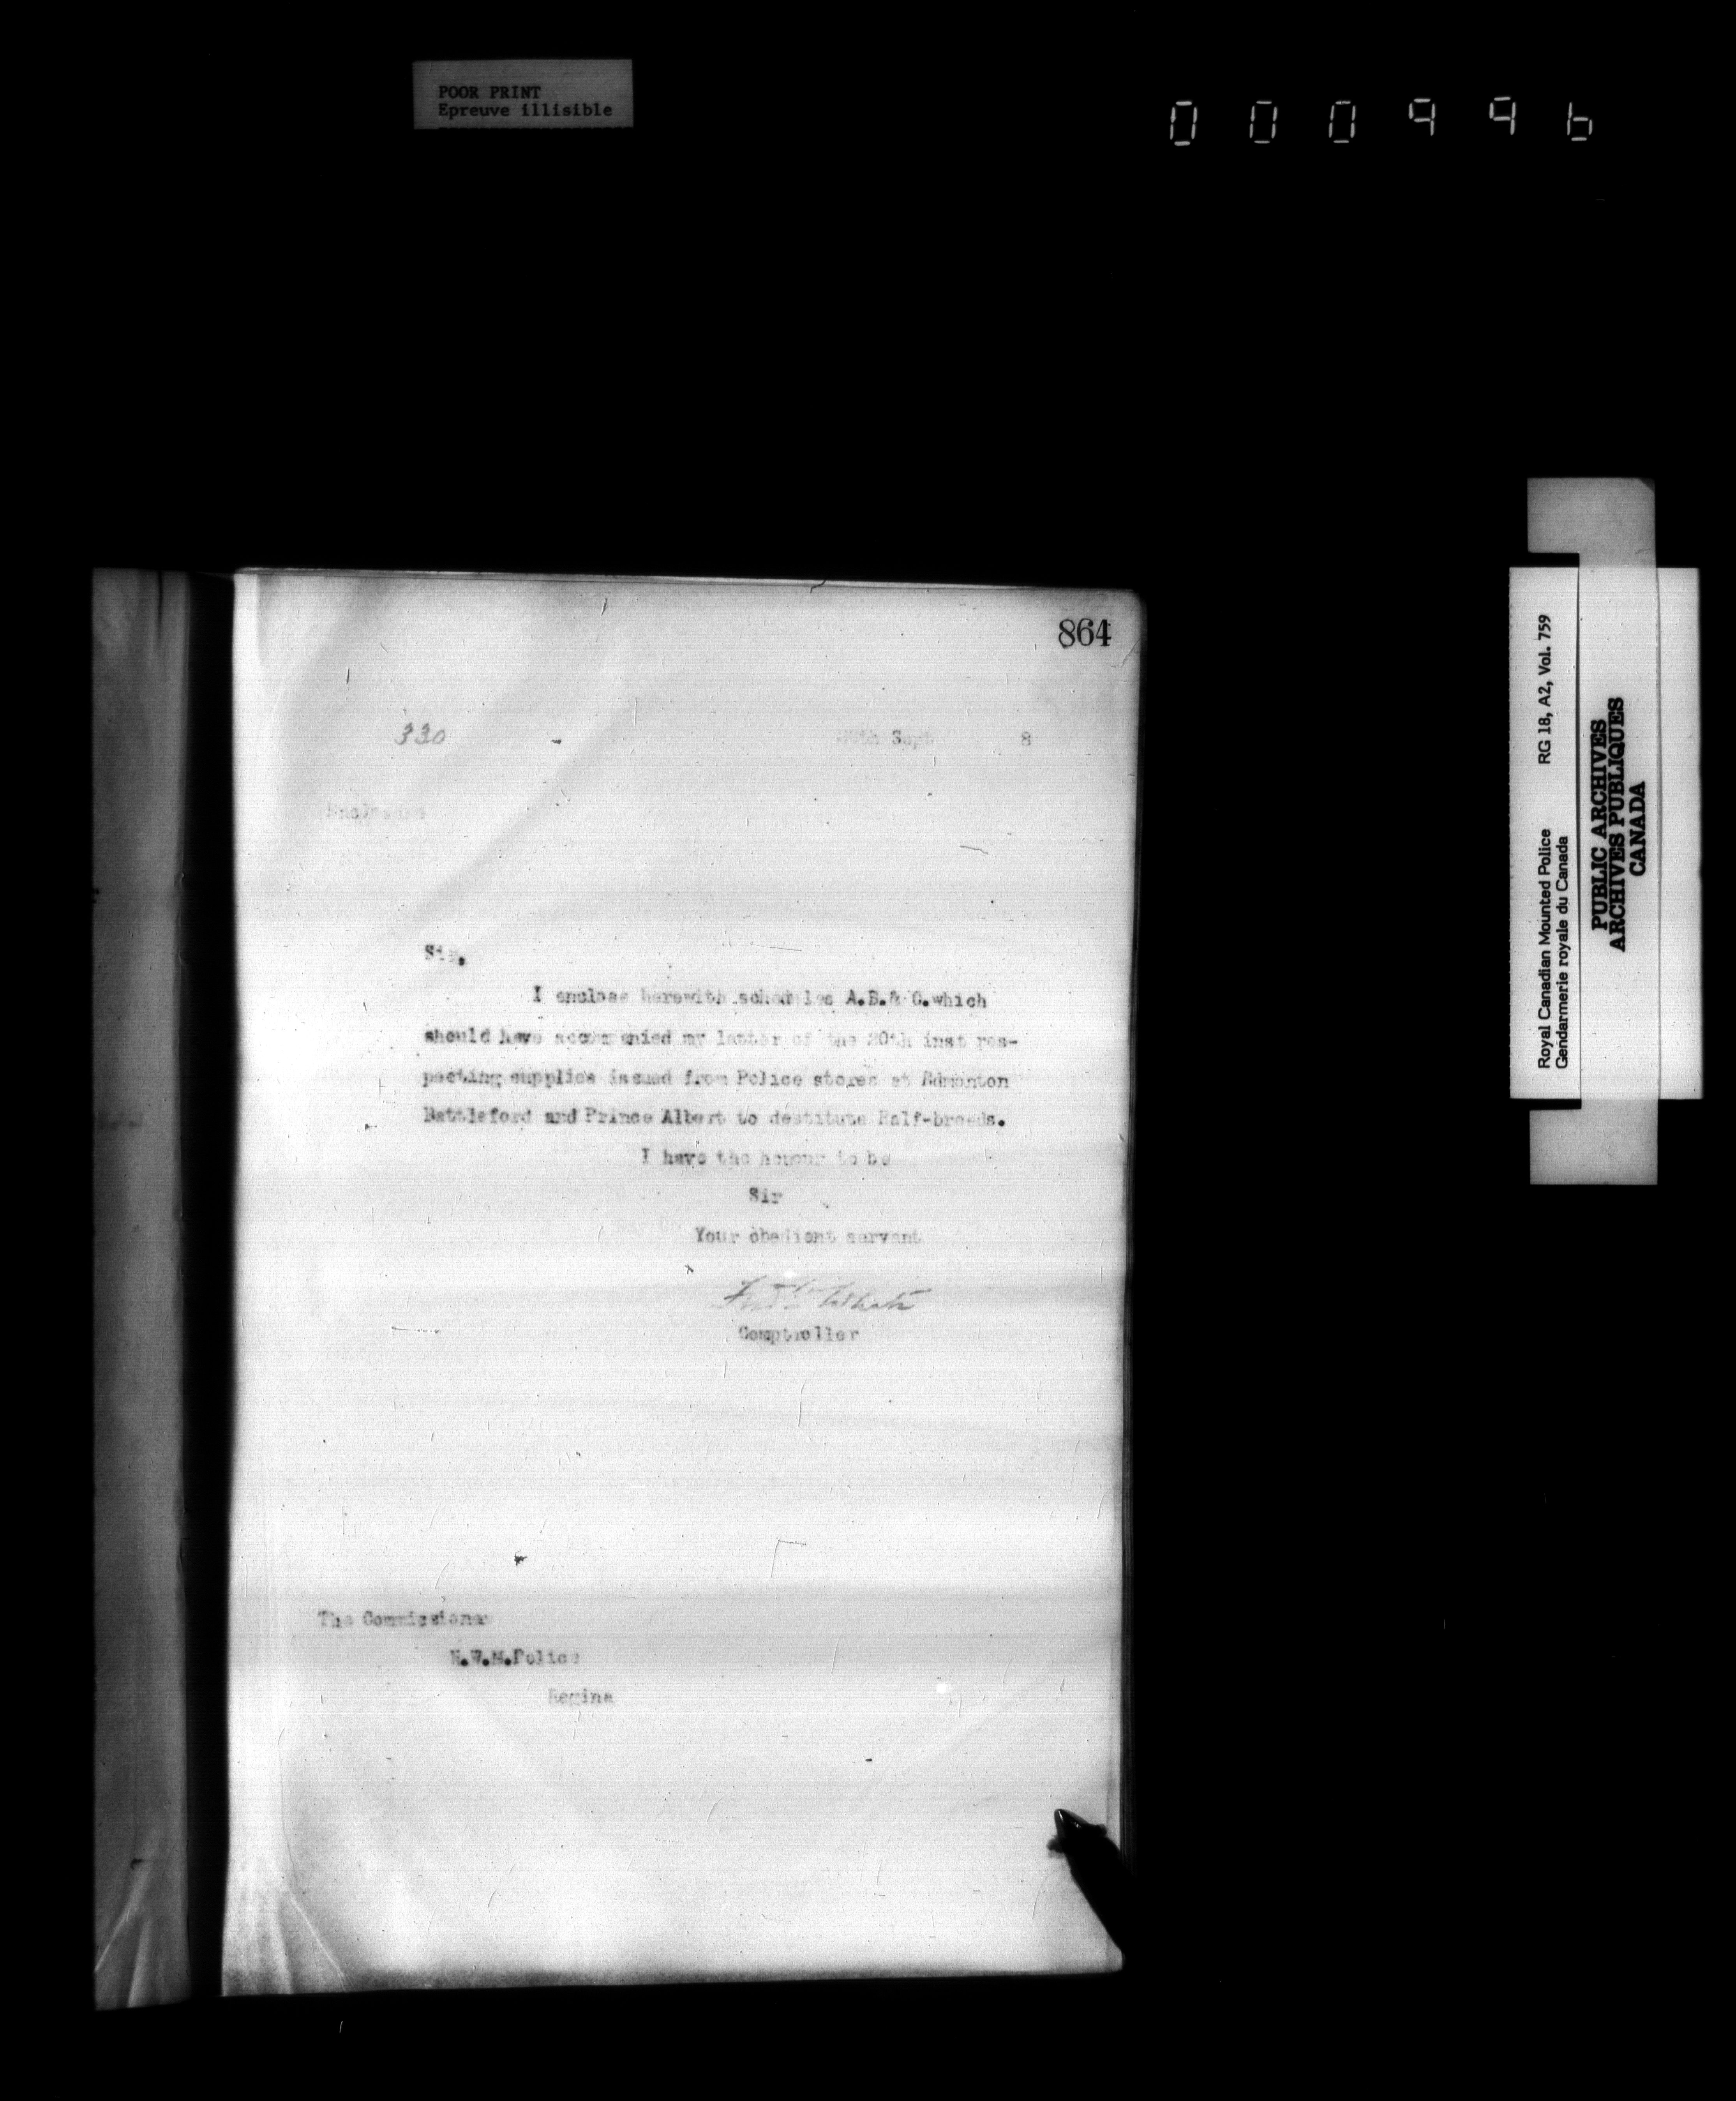 POOR PRINT
Epreuve illisible
000996
864
330
Sept 8
Enclosure
Sir,
I enclose herewith schedules A.B.& C.which
should have accompanied my letter of the 20th inst res-
pecting supplies issued from Police stores at Edmonton
Battleford and Prince Albert to destitute Half-breeds.
I have the honour to be
Sir
Your obedient servant
Fred White
Comptroller
The Commissioner
N.W.M.Police
Regina
Royal Canadian Mounted Police RG 18, A2, Vol. 759
Gendarmerie royale du Canada
PUBLIC ARCHIVES
ARCHIVES PUBLIQUES
CANADA